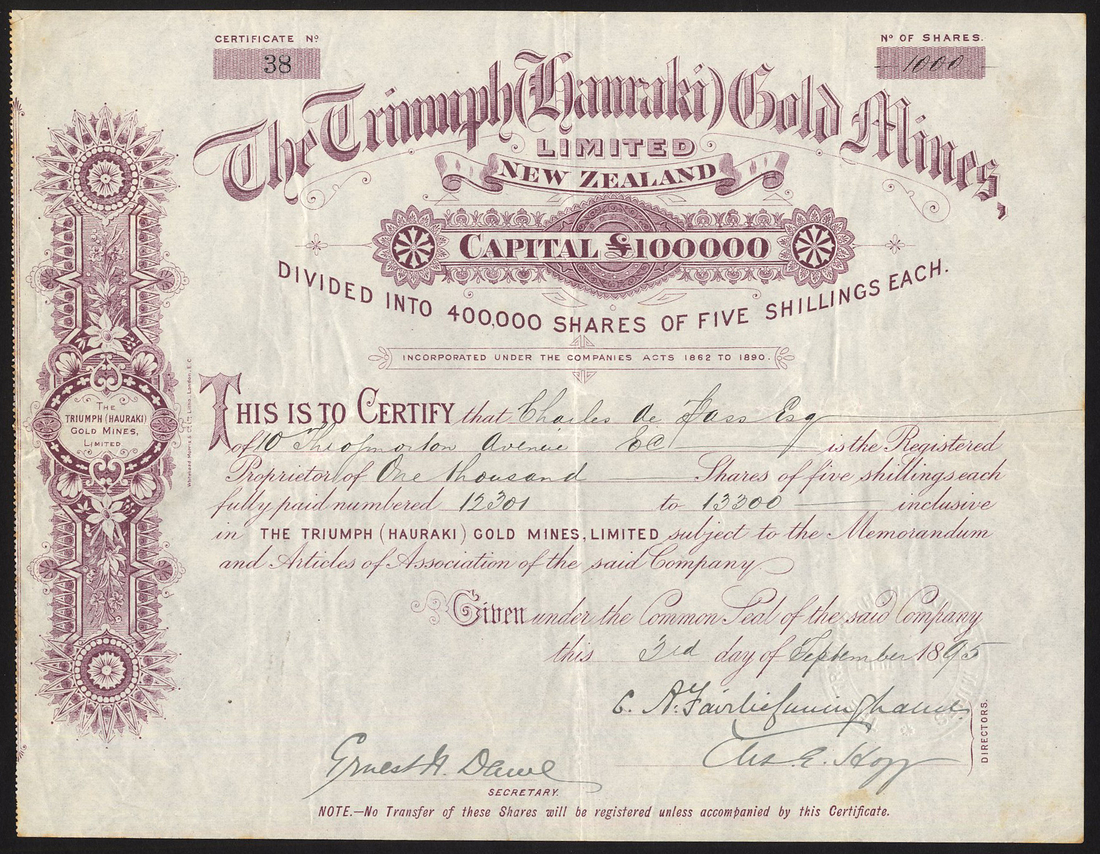 CERTIFICATE No
38
No OF SHARES.
1000
The Triumph (Hauraki) Gold Mines,
LIMITED
NEW ZEALAND
CAPITAL £100000
DIVIDED INTO 400,000 SHARES OF FIVE SHILLINGS EACH.
INCORPORATED UNDER THE COMPANIES ACTS 1862 TO 1890.
THE
TRIUMPH (HAURAKI)
GOLD MINES,
LIMITED
THIS IS TO CERTIFY that Charles de Pass Esq
of 10 Throgmorton Avenue EC is the Registered
Proprietor of One thousand Shares of five shillings each
fully paid numbered 12301 to 13300 inclusive
in THE TRIUMPH (HAURAKI) GOLD MINES, LIMITED subject to the Memorandum
and Articles of Association of the said Company
Given under the Common Seal of the said Company
this 3rd day of September 1895
C. A. Fairlie Cuninghame
Chs. E. Hogg
DIRECTORS.
Ernest H. Dawe
SECRETARY.
NOTE.—No Transfer of these Shares will be registered unless accompanied by this Certificate.